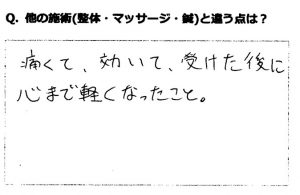 Q. 他の施術(整体・マッサージ・鍼)と違う点は？
痛くて、効いて、受けた後に
心まで軽くなったこと。